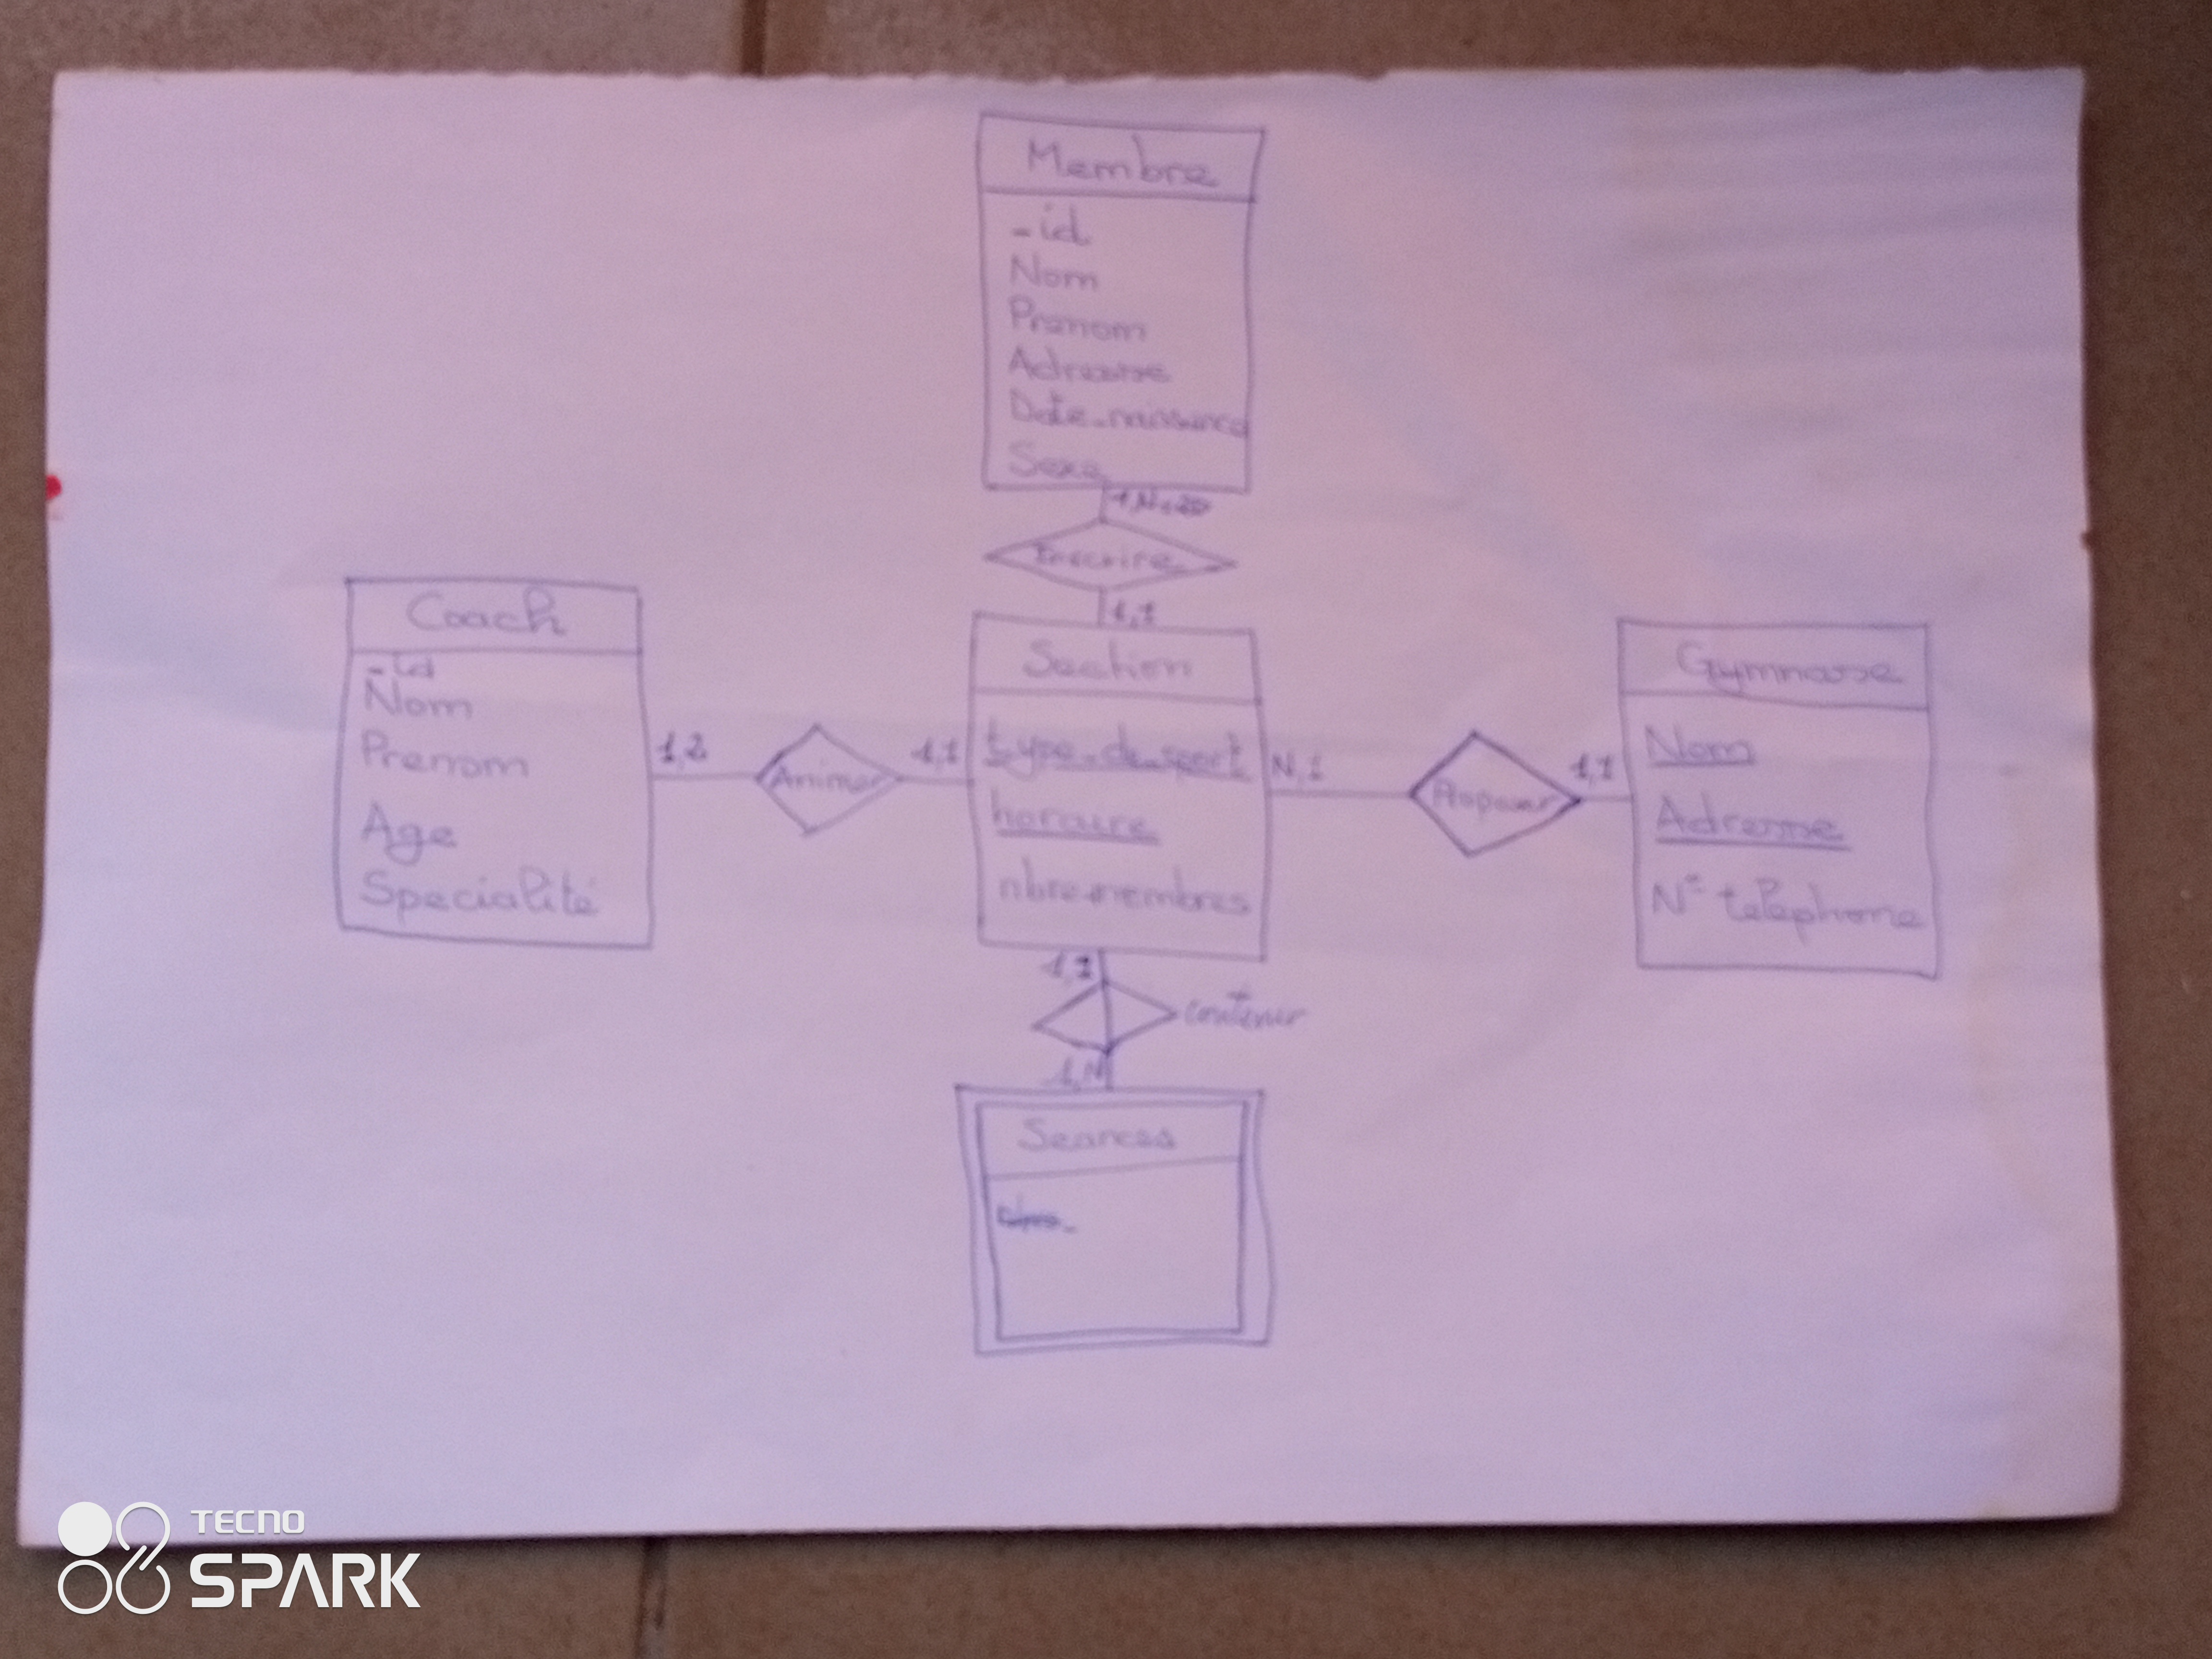 Membre
-id
Nom
Prenom
Adresse
Date-naissance
Sexe
Inscrire
1,1
Coach
-id
Nom
Prenom
Age
Specialité
1,2
Animer
1,1
Section
type-de-sport
horaire
nbre-membres
N,1
Proposer
1,1
Gymnase
Nom
Adresse
N° telephone
1,1
contenir
1,N
Seances
TECNO
SPARK